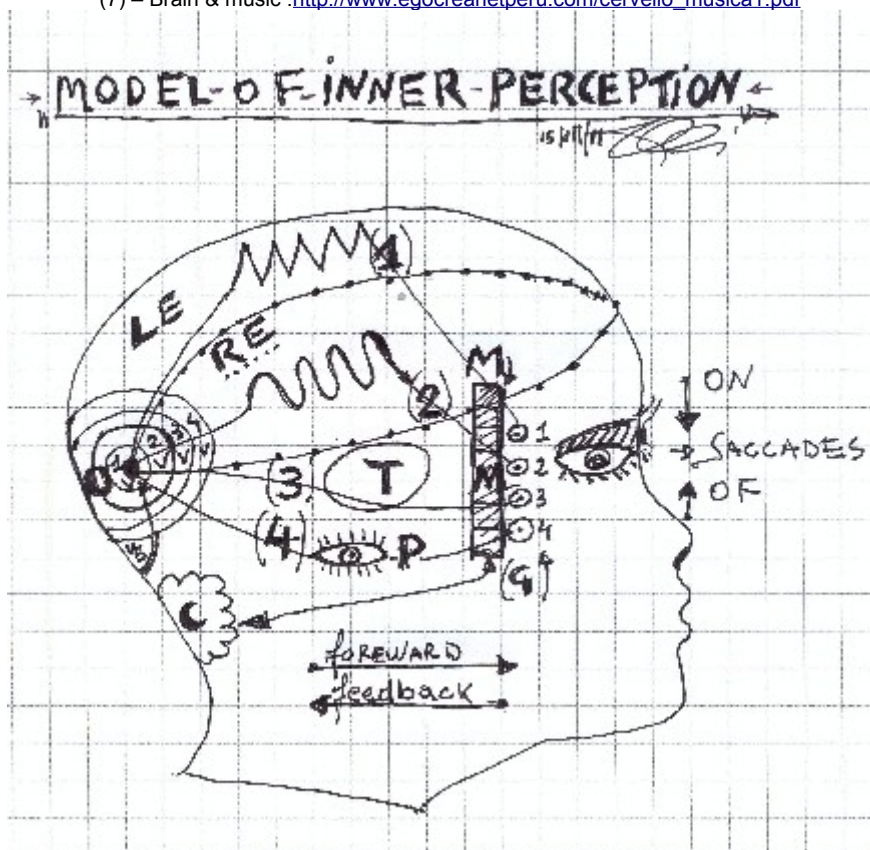 (7) – Brain & music :http://www.egocreanetperu.com/cervello_musica1.pdf
MODEL-OF-INNER-PERCEPTION
LE
(1)
RE
(2)
M
ON
1
SACCADES
2
M
3
OF
4
O
1 2 3 4
V V V V
(3)
T
(4)
P
V5
(G)
C
foREWARD
feedback